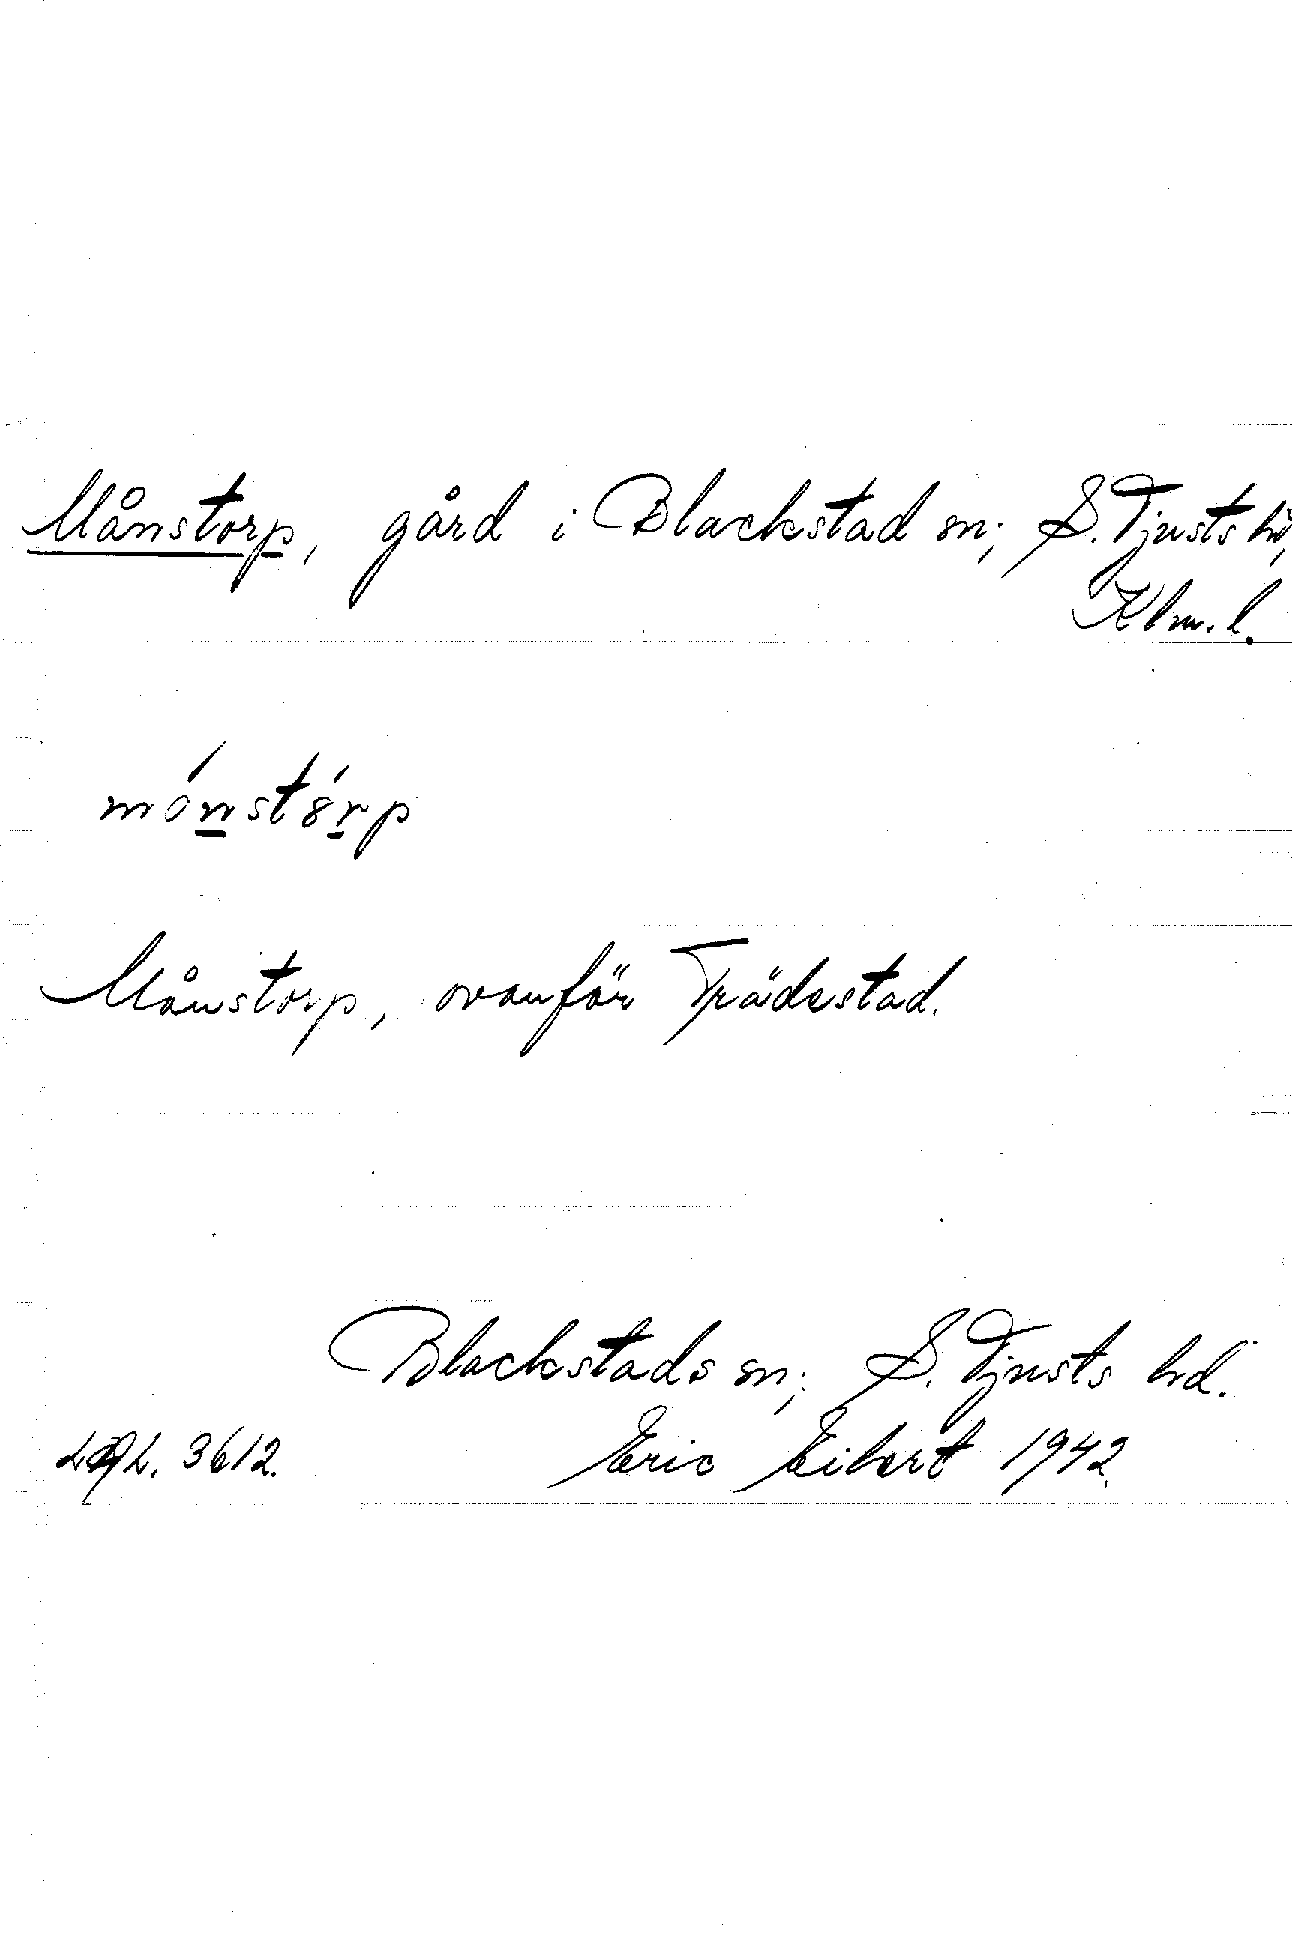 Månstorp, gård i Blackstad sn; S. Tjusts hd,
Klm. l.
mónstórp
Månstorp, ovanför Trädestad.
Blackstads sn; S. Tjusts hd.
3612. Eric Eibert 1942.